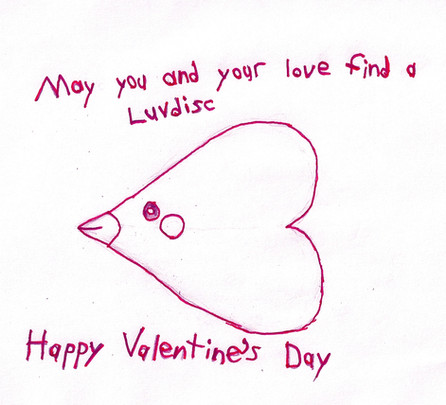 May you and your love find a
Luvdisc
Happy Valentine's Day